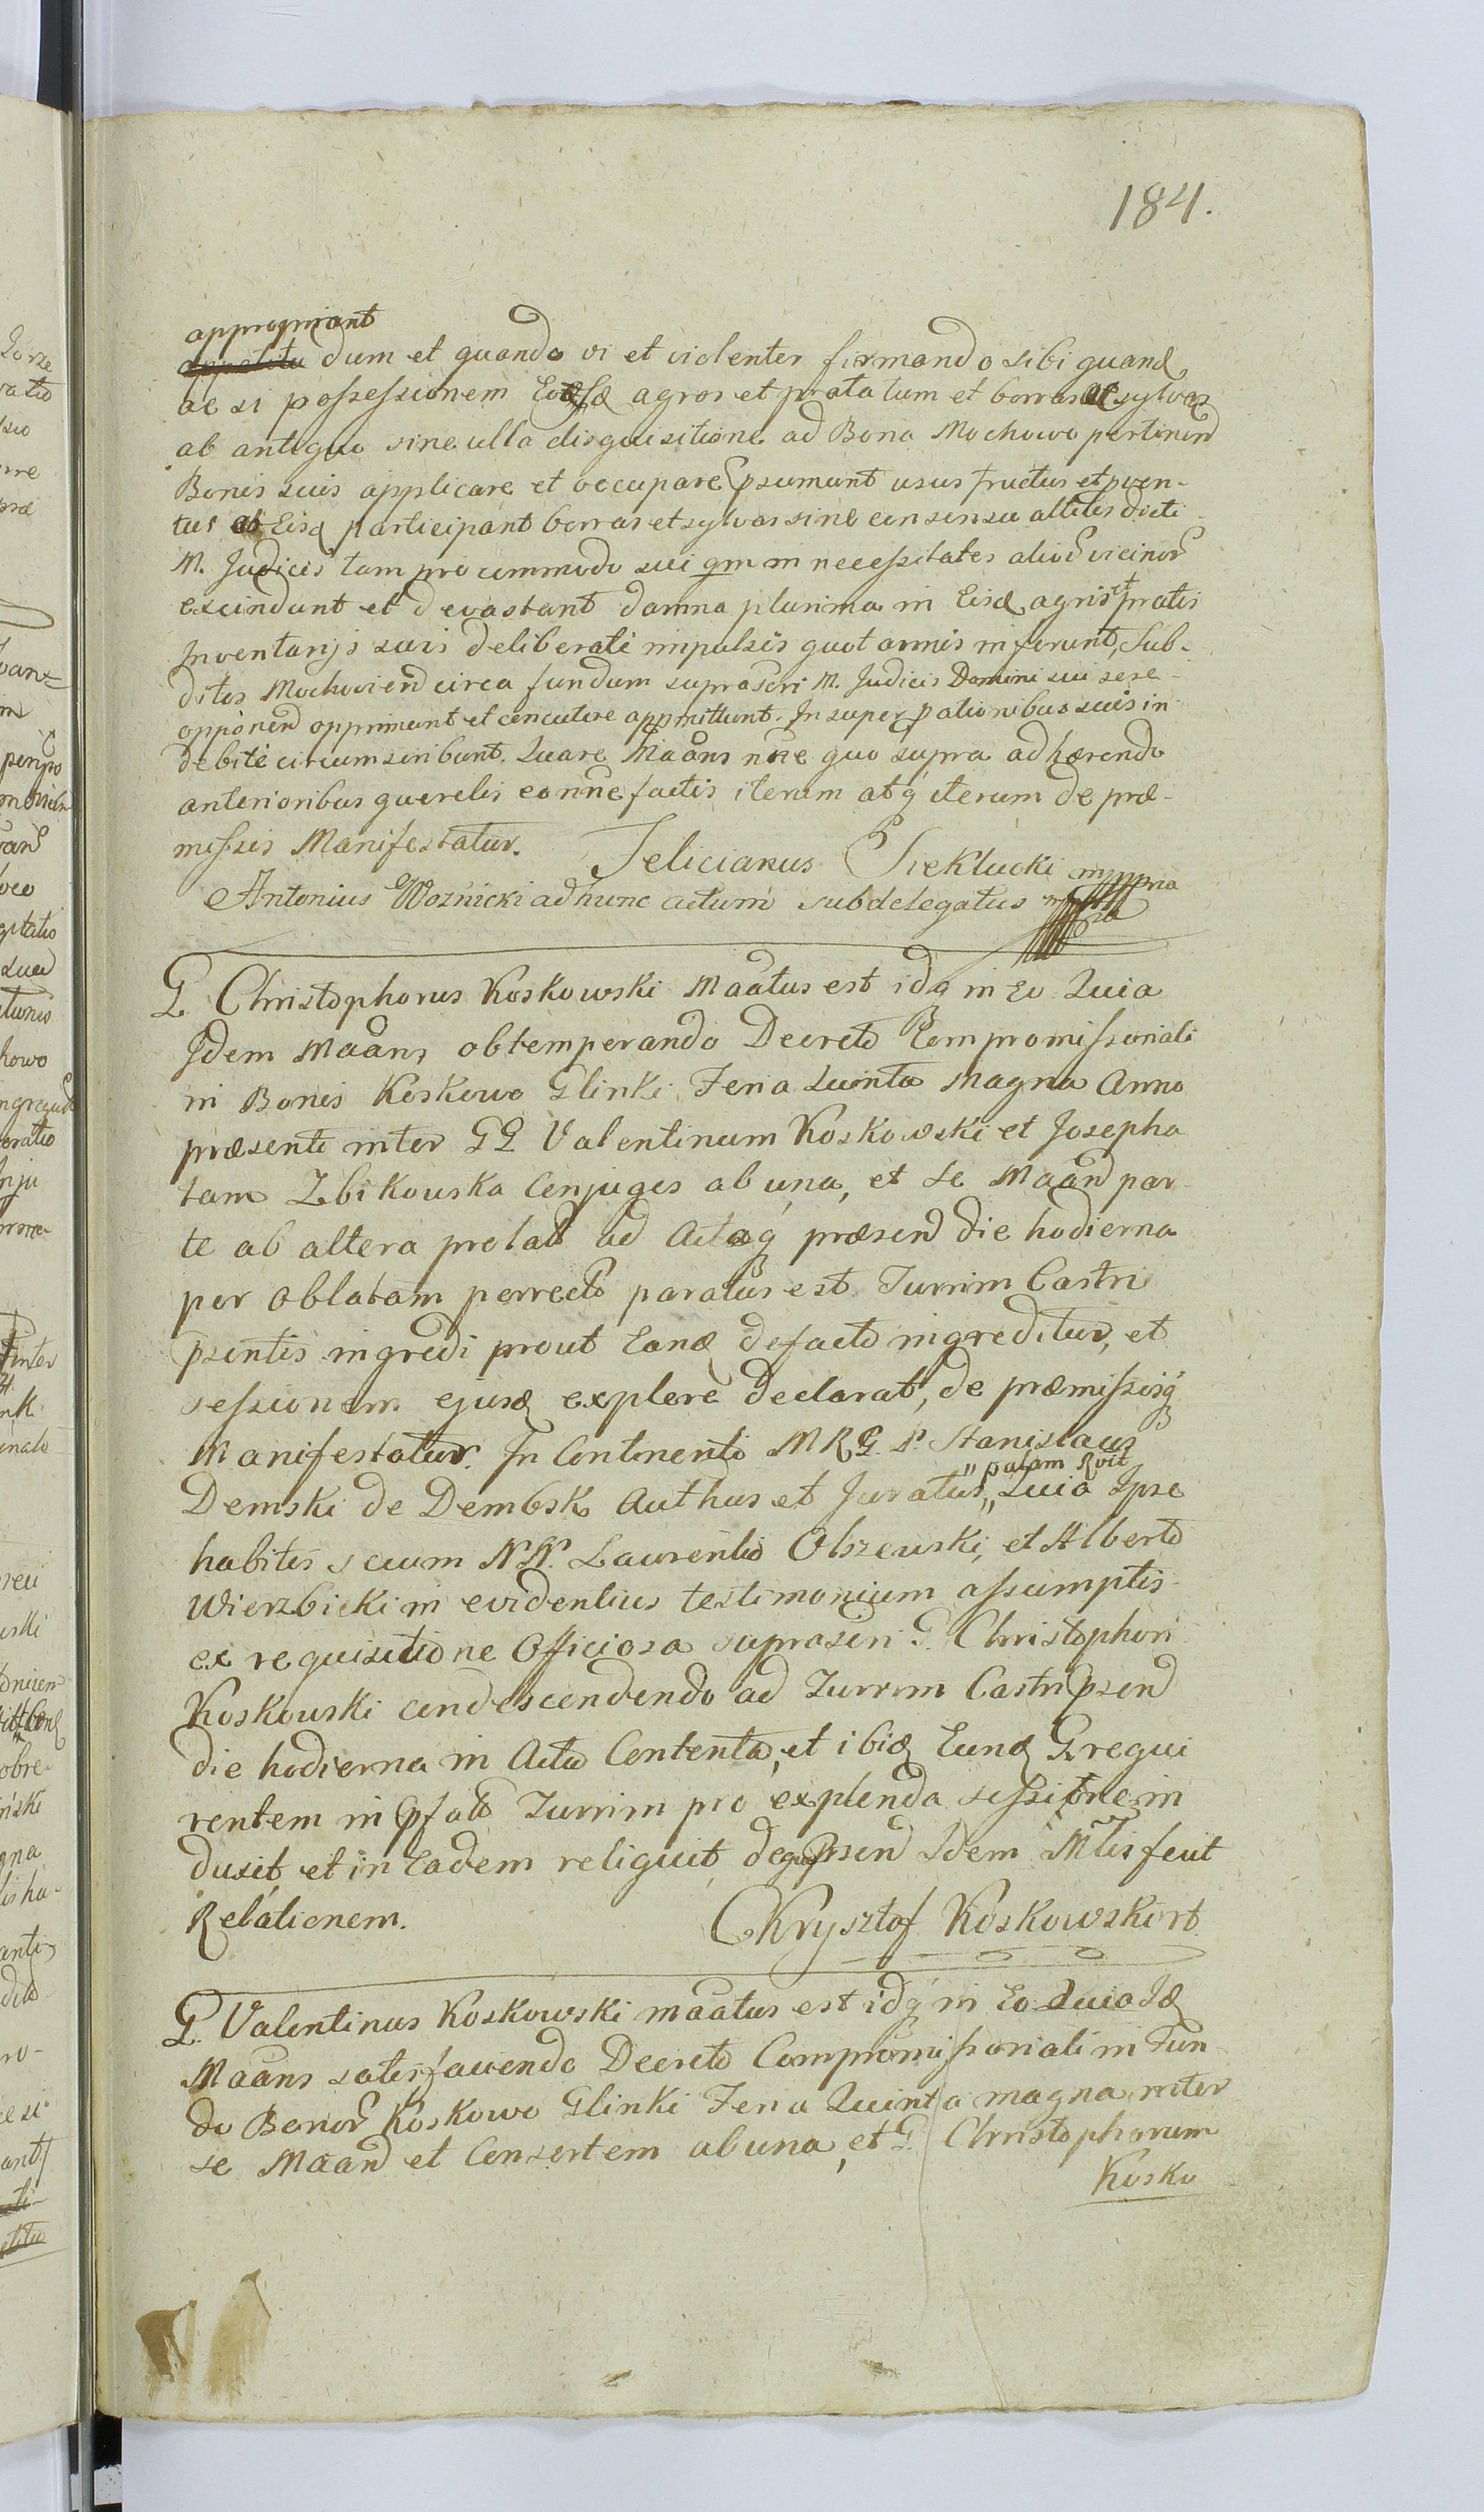 184.
appropriant
appetitu dum et quando vi et violenter firmando sibi quand
ac si possessionem Eosd agros et prata tum et borras et sylvas
ab antiquo sine ulla disquisitione ad Bona Mochowo pertinen
Bonis suis applicare et occupare psumunt usus fructus et pven-
tus ab Eisd participant borras et sylvas sine consensu attltis dicti
M. Judicis tam pro commodo sui qm in necessitates alior vicinor
excindunt et devastant damna plurima in Eisd agris et pratis
Inventarijs suis deliberate impulsis quot annis inferunt, Sub-
ditos Mochovien circa fundum suprascri M. Judicis Domini sui sese
opponen opprimunt et concutere appmittunt. Insuper pationibus suis in
debite circumscribunt. Quare Maans nne quo supra adhærendo
anterioribus querelis eo nne factis iterum atq iterum de præ-
missis Manifestatur. Felicianus Sieklucki mppria
Antonius Woznicki ad hunc actum subdelegatus mppria
G. Christophorus Koskowski Maatus est idq in eo Quia
Idem Maans obtemperando Decreto Compromissoriali
in Bonis Koskowo Glinki Feria Quinta Magna Anno
præsenti inter GG Valentinum Koskowski et Josepha
tam Zbikowska Conjuges ab una, et se Maan par-
te ab altera prolato ad Actaq præsen die hodierna
per oblatam porrecto paratus est Turrim Castri
psentis ingredi prout Eand defacto ingreditur, et
sessionem ejusd explere declarat, de præmissisq
Manifestatur. In Continenti MRG. P. Stanislaus
" palam Rvit
Demski de Dembsk Authus et Juratus " Quia Ipse
habitis secum NN. Laurentio Olszewski, et Alberto
Wierzbicki in evidentius testimonium assumptis
ex requisitione Officiosa suprascri G. Christophori
Koskowski condescendendo ad Turrim Castri psen
die hodierna in Actu Contenta, et ibid Eund G requi
rentem in pfato Turrim pro explenda sessione in
duxit, et in Eadem reliquit, de quo psen Idem Mltis fecit
Relationem. Krysztof Koskowski rt
G. Valentinus Koskowski maatus est idq in Eo Quia Id
Maans satisfaciendo Decreto Compromissoriali in Fun
do Bonor Koskowo Glinki Feria Quinta magna inter
se Maan et Consortem ab una, et G. Christophorum
Kosko